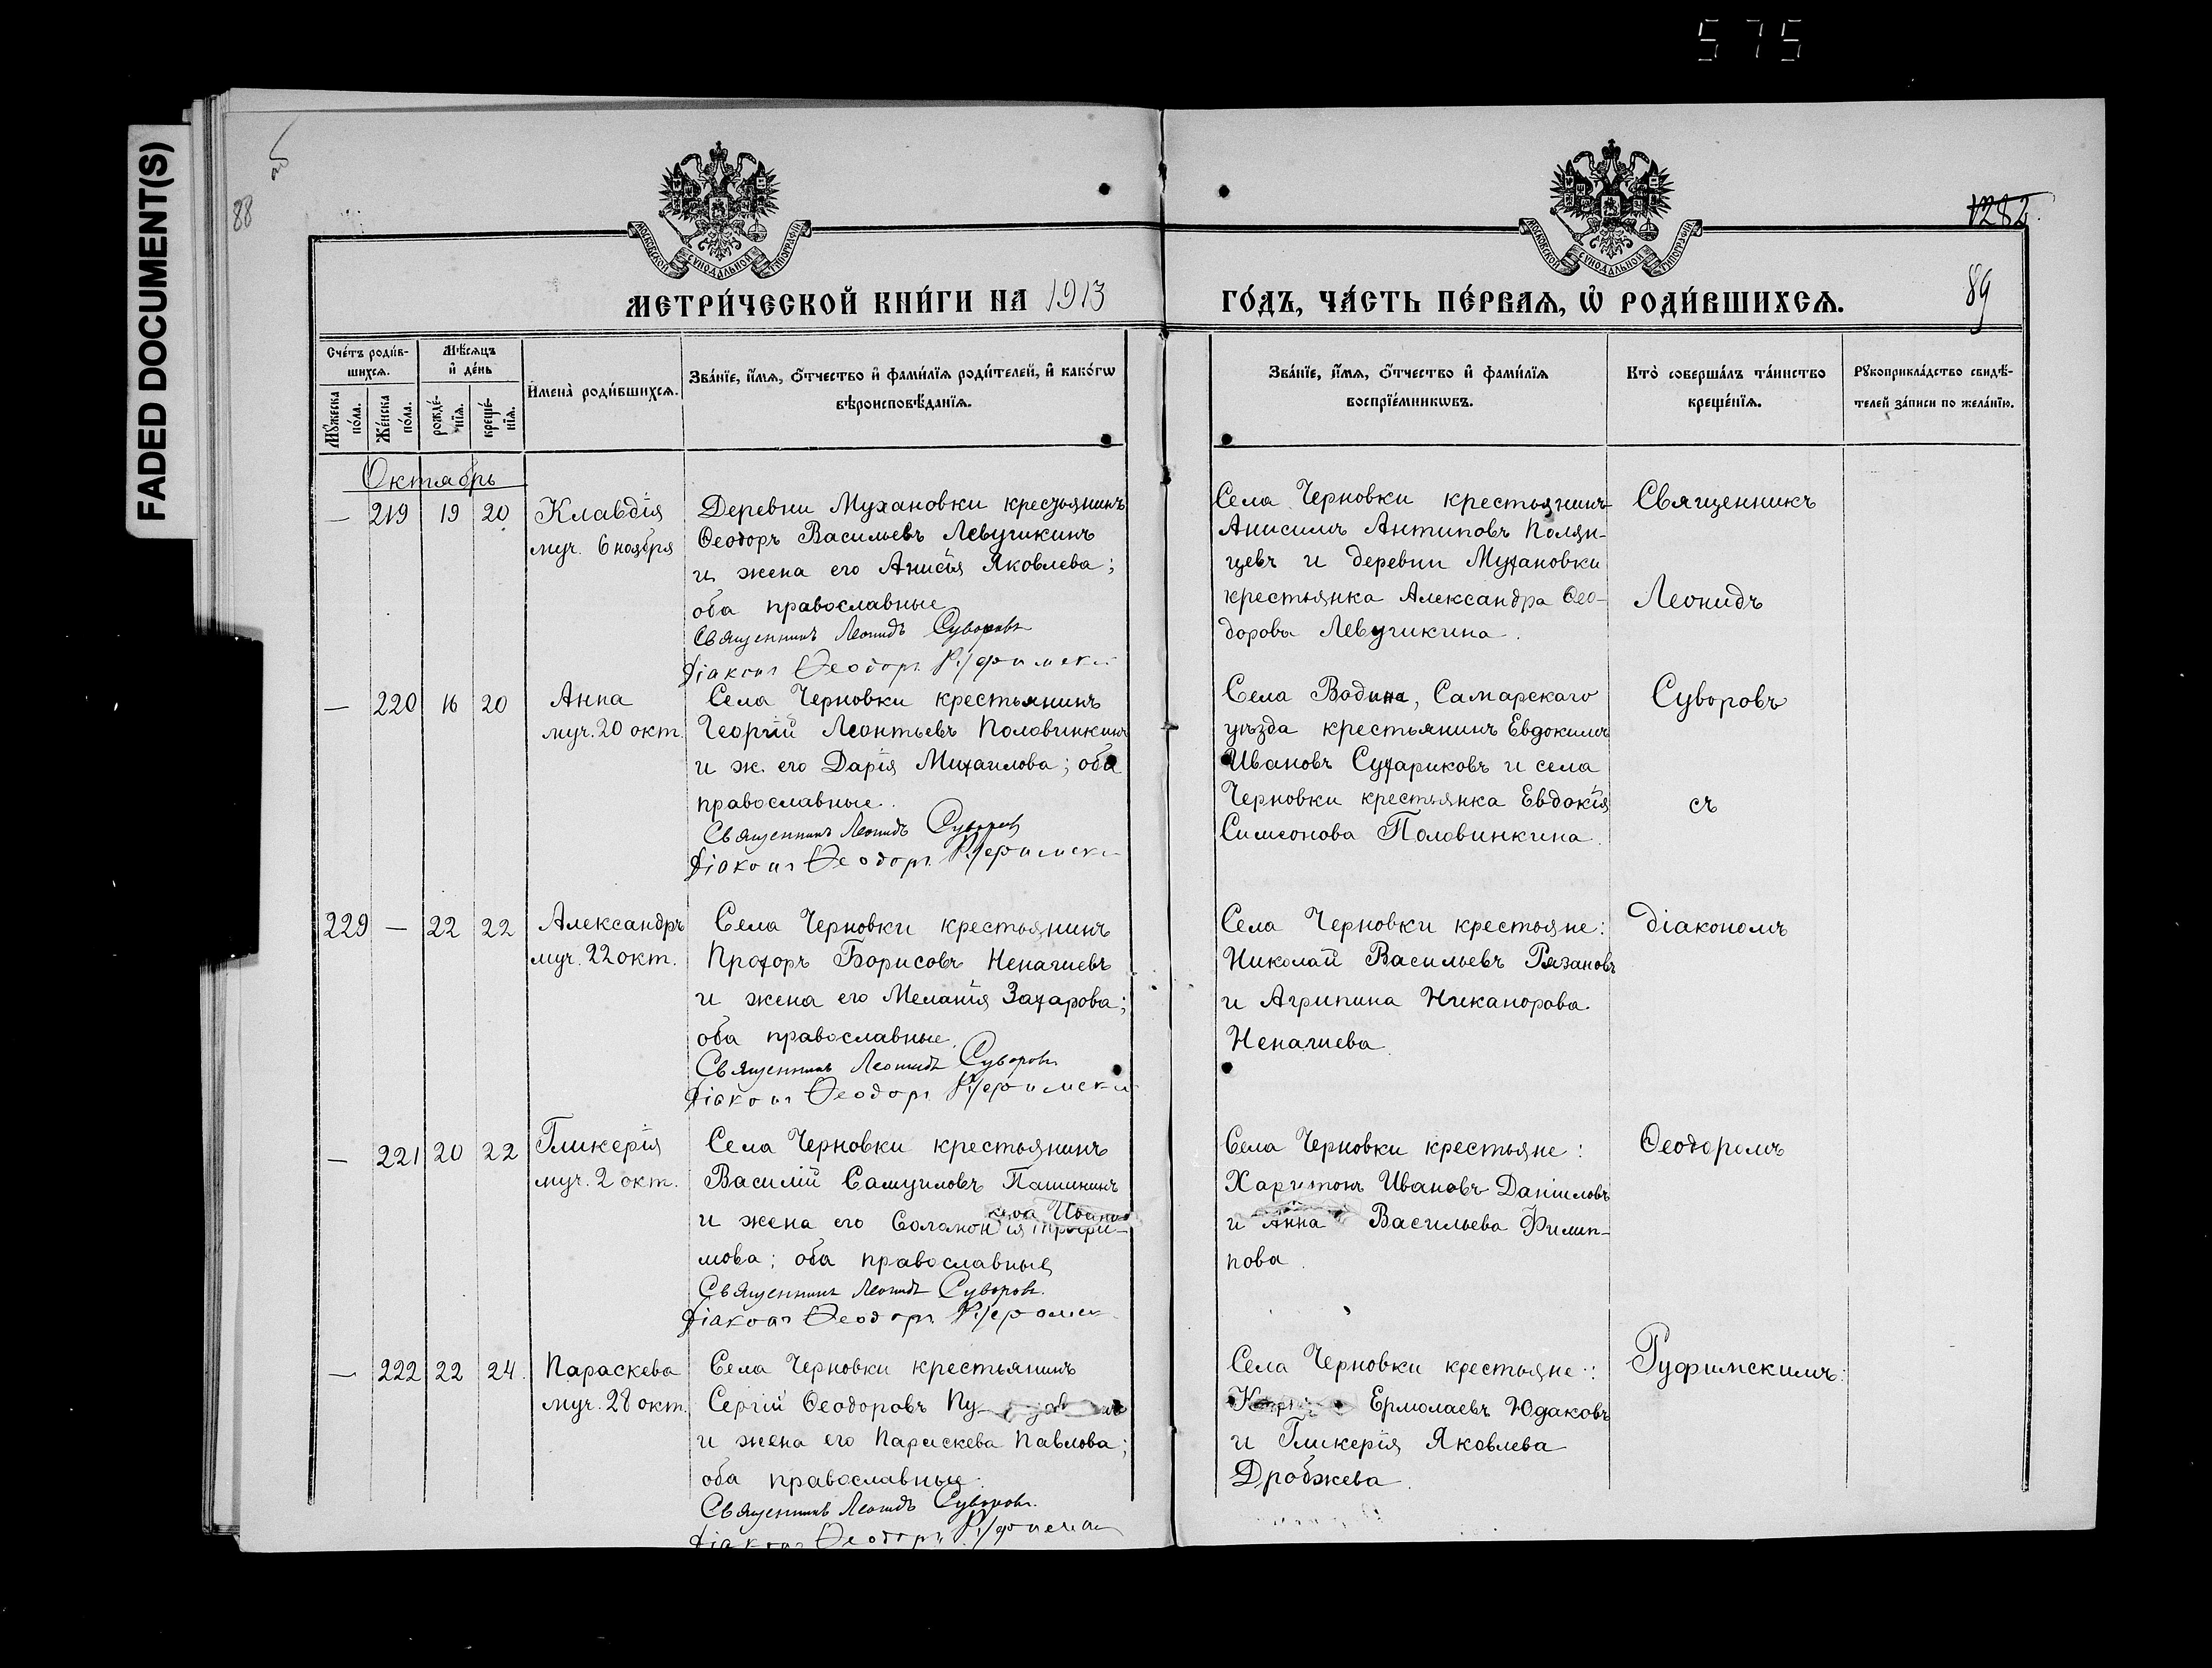 575
FADED DOCUMENT(S)
88
об
МОСКОВСКОЙ СѴНОДАЛЬНОЙ ТИПОГРАФІИ
МОСКОВСКОЙ СѴНОДАЛЬНОЙ ТИПОГРАФІИ
1282
МЕТРИ́ЧЕСКОЙ КНИ́ГИ НА 1913
ГО́ДЪ, ЧА́СТЬ ПЕ́РВАѦ, Ѡ҆ РОДИ́ВШИХСѦ.
89
Сче́тъ роди́в-
шихсѧ.
Мѣ́сѧцъ
и҆ де́нь
Мꙋ́жеска
по́ла.
Же́нска
по́ла.
рожде́-
нїѧ.
креще́-
нїѧ.
И҆мена̀ роди́вшихсѧ.
Зва́нїе, и҆́мѧ, ѻ҆́тчество и҆ фами́лїѧ роди́телей, и҆ како́гѡ
вѣроисповѣ́данїѧ.
Зва́нїе, и҆́мѧ, ѻ҆́тчество и҆ фами́лїѧ
воспрїе́мникѡвъ.
Кто̀ соверша́лъ та́инство
креще́нїѧ.
Рꙋкоприкла́дство свидѣ́-
телей за́писи по жела́нїю.
Октябрь
— 219 19 20 Клавдія
муч. 6 ноября
Деревни Мухановки крестьянинъ
Ѳеодоръ Васильевъ Левушкинъ
и жена его Анисія Яковлева;
оба православные
Священникъ Леонидъ Суворовъ
Діаконъ Ѳеодоръ Руфимскій
Села Черновки крестьянинъ
Анисимъ Антиповъ Полян-
цевъ и деревни Мухановки
крестьянка Александра Ѳео-
дорова Левушкина.
Священникъ
Леонидъ
— 220 16 20 Анна
муч. 20 окт.
Села Черновки крестьянинъ
Георгій Леонтьевъ Половинкинъ
и ж. его Дарія Михаилова; оба
православные.
Священникъ Леонидъ Суворовъ
Діаконъ Ѳеодоръ Руфимскій
Села Водина, Самарскаго
уѣзда крестьянинъ Евдокимъ
Ивановъ Сухариковъ и села
Черновки крестьянка Евдокія
Симеонова Половинкина.
Суворовъ
съ
229 — 22 22 Александръ
муч. 22 окт.
Села Черновки крестьянинъ
Прохоръ Борисовъ Ненашевъ
и жена его Меланія Захарова;
оба православные.
Священникъ Леонидъ Суворовъ
Діаконъ Ѳеодоръ Руфимскій
Села Черновки крестьяне:
Николай Васильевъ Рязановъ
и Агрипина Никанорова
Ненашева.
діакономъ
— 221 20 22 Гликерія
муч. 2 окт.
Села Черновки крестьянинъ
Василій Самуиловъ Пашинкинъ
и жена его Соломонія
мова; оба православные
Священникъ Леонидъ Суворовъ.
Діаконъ Ѳеодоръ Руфимскій
Села Черновки крестьяне:
Харитонъ Ивановъ Даніиловъ
и Анна Васильева Филип-
пова.
Ѳеодоромъ
— 222 22 24. Параскева
муч. 28 окт.
Села Черновки крестьянинъ
Сергій Ѳеодоровъ
и жена его Параскева Павлова;
оба православные.
Священникъ Леонидъ Суворовъ.
Діаконъ Ѳеодоръ Руфимскій
Села Черновки крестьяне:
Ермолаевъ Юдаковъ
и Гликерія Яковлева
Дробжева.
Руфимскимъ.